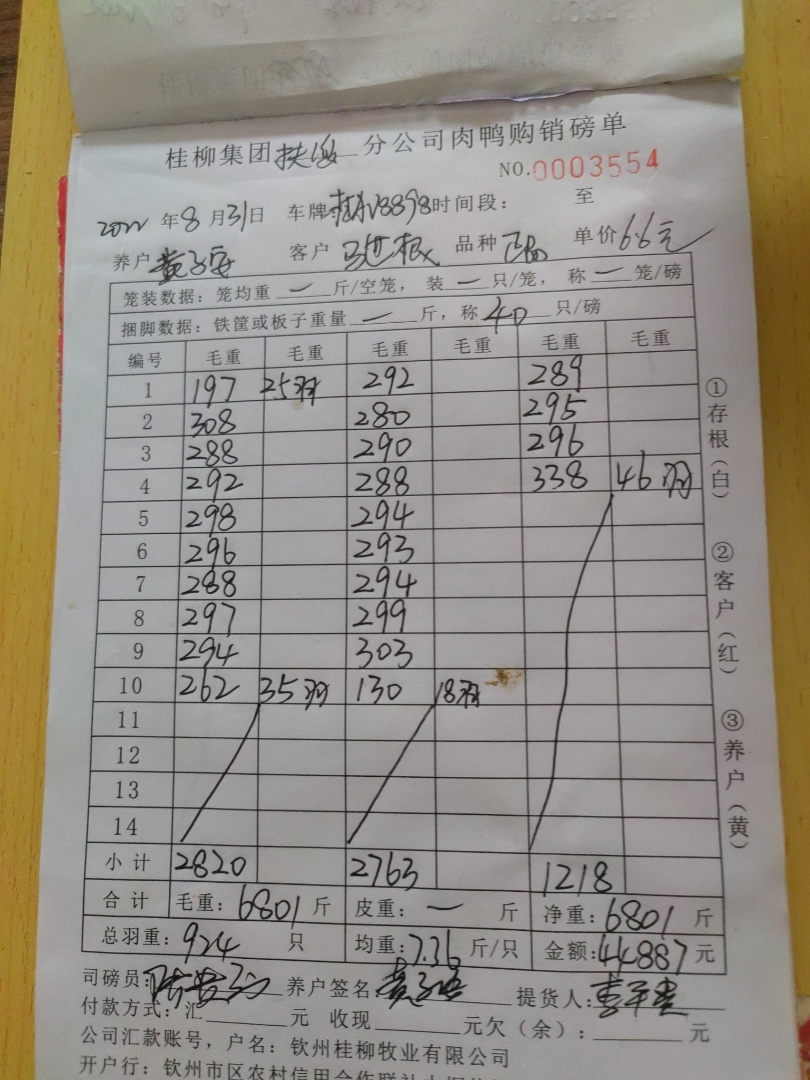 桂柳集团扶绥分公司肉鸭购销磅单
NO.0003554
2022年8月31日 车牌: 8898 时间段: 至
养户 黄 客户 马世 品种 单价6.6元
笼装数据：笼均重 一 斤/空笼， 装 一 只/笼， 称 一 笼/磅
捆脚数据：铁筐或板子重量 一 斤，称 40 只/磅
编号 毛重 毛重 毛重 毛重 毛重 毛重
1 197 25羽 292 289
2 308 280 295
3 288 290 296
4 292 288 338 46羽
5 298 294
6 296 293
7 288 294
8 297 299
9 294 303
10 262 35羽 130 18羽
11
12
13
14
小计 2820 2763 1218
合计 毛重：6801斤 皮重：一 斤 净重：6801斤
总羽重：924 只 均重：7.36斤/只 金额：44887元
司磅员： 养户签名：黄 提货人：李
付款方式：汇 元 收现 元欠（余）： 元
公司汇款账号，户名：钦州桂柳牧业有限公司
开户行：钦州市区农村信用合作联社
①存根（白）
②客户（红）
③养户（黄）